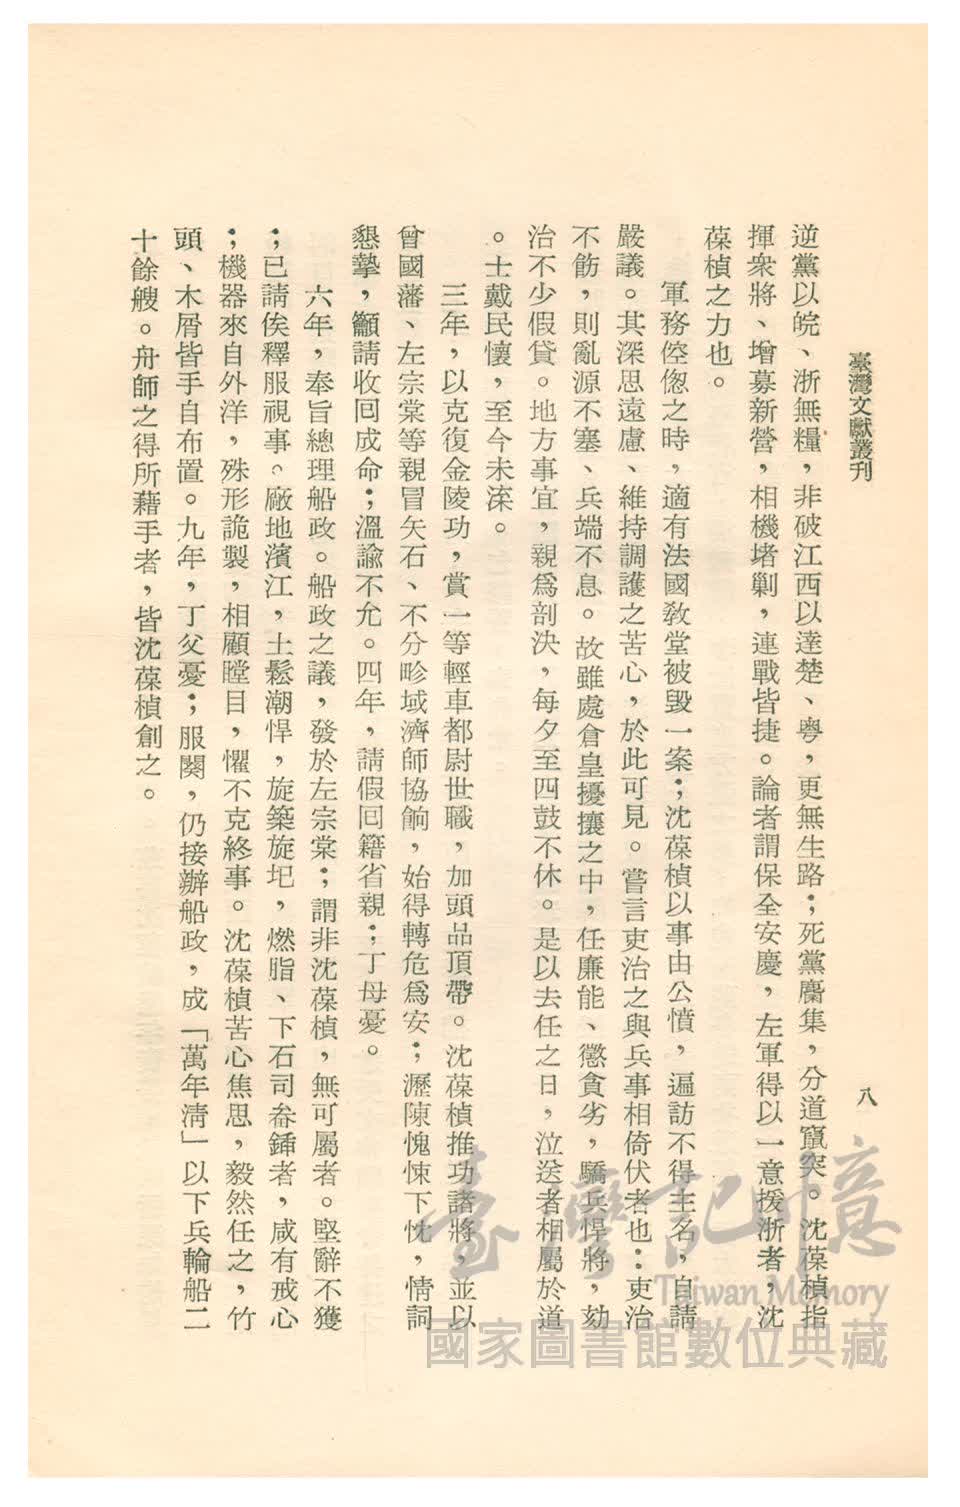 臺灣文獻叢刊
八
逆黨以皖、浙無糧，非破江西以達楚、粤，更無生路；死黨麕集，分道竄突。沈葆楨指
揮衆將、增募新營，相機堵剿，連戰皆捷。論者謂保全安慶，左軍得以一意援浙者，沈
葆楨之力也。
軍務倥偬之時，適有法國教堂被毀一案；沈葆楨以事由公憤，遍訪不得主名，自請
嚴議。其深思遠慮、維持調護之苦心，於此可見。嘗言吏治之與兵事相倚伏者也：吏治
不飭，則亂源不塞、兵端不息。故雖處倉皇擾攘之中，任廉能、懲貪劣，驕兵悍將，劾
治不少假貸。地方事宜，親爲剖決，每夕至四鼓不休。是以去任之日，泣送者相屬於道
。士戴民懷，至今未滚。
三年，以克復金陵功，賞一等輕車都尉世職，加頭品頂帶。沈葆楨推功諸將，並以
曾國藩、左宗棠等親冒矢石、不分畛域濟師協餉，始得轉危爲安；瀝陳愧悚下忱，情詞
懇摯，籲請收回成命；溫諭不允。四年，請假回籍省親；丁母憂。
六年，奉旨總理船政。船政之議，發於左宗棠；謂非沈葆楨，無可屬者。堅辭不獲
；已請俟釋服視事。廠地濱江，土鬆潮悍，旋築旋圮，燃脂、下石司畚鍤者，咸有戒心
；機器來自外洋，殊形詭製，相顧瞠目，懼不克終事。沈葆楨苦心焦思，毅然任之，竹
頭、木屑皆手自布置。九年，丁父憂；服闋，仍接辦船政，成「萬年淸」以下兵輪船二
十餘艘。舟師之得所藉手者，皆沈葆楨創之。
臺灣記憶
Taiwan Memory
國家圖書館數位典藏